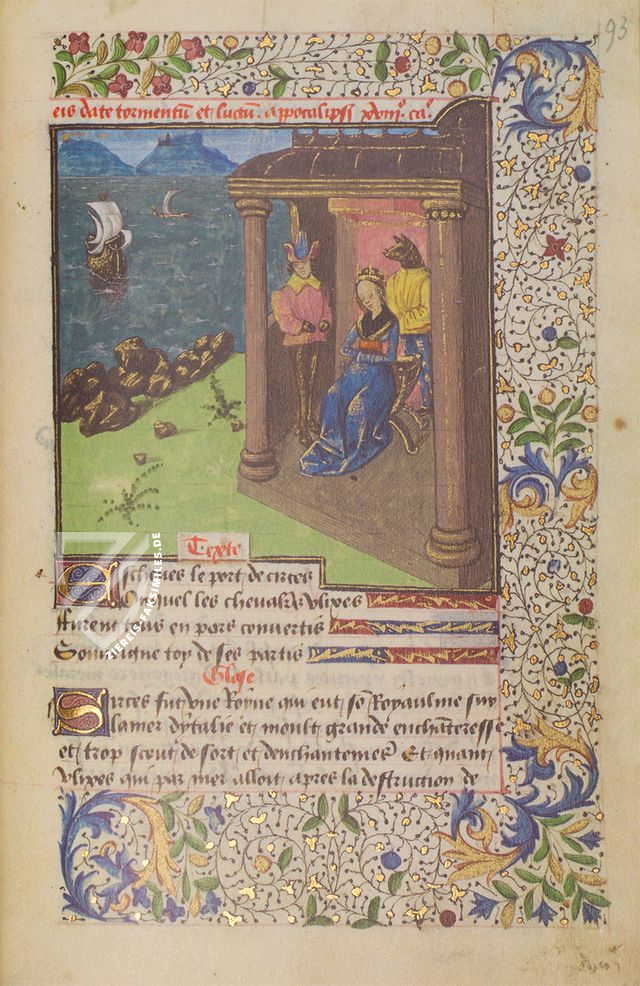 93
eis date tormentū et luctū. appocalipsi xviijº. caº.
Texte
Escheues le port de circes
Ou quel les chevalrs vlixes
ffurent tous en pors convertis
Souviengne toy de ses partis
Glose
Sirces fut vne Royne qui eut sō Royaulme sur
la mer dytalie et moult grande enchāteresse
et trop sceut de sort et denchantemēs Et quant
vlixes qui par mer alloit apres la destruction de
ZIEREIS FACSIMILES.DE